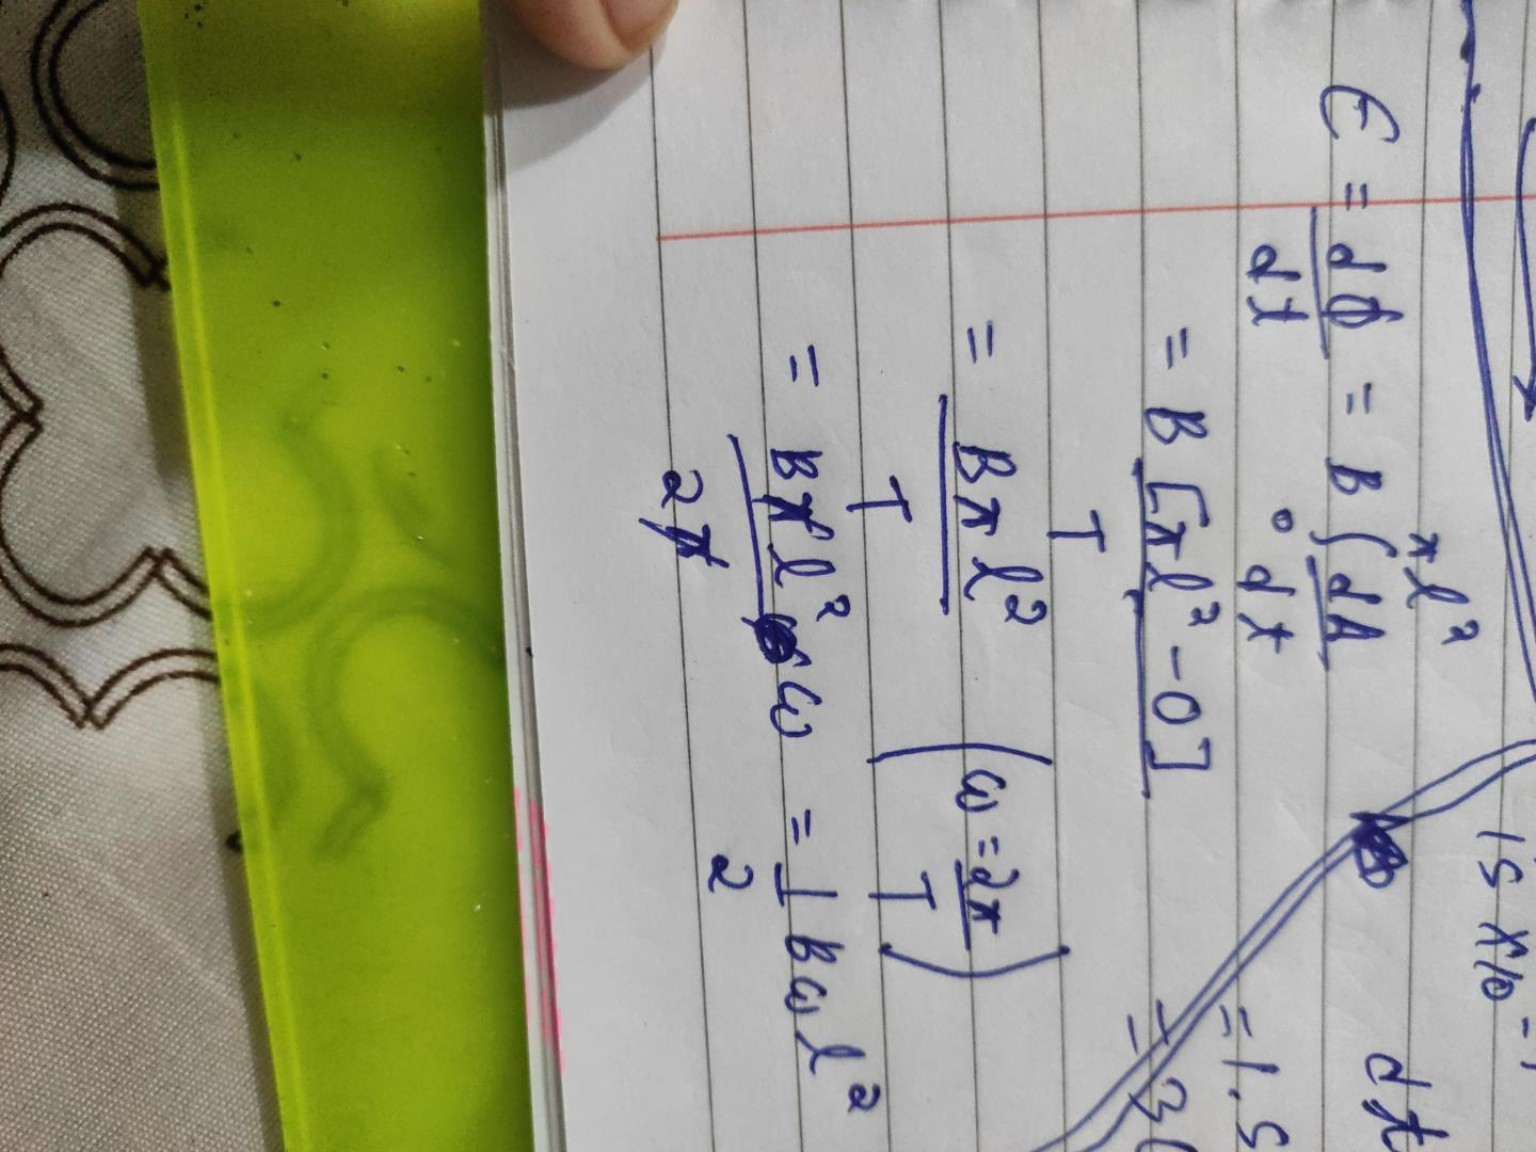 πl²
ϵ = dϕ/dt = B ∫₀ dA/dt
= B [πl² - 0] / T
= Bπl² / T (ω = 2π/T)
= Bπl²ω / 2π = 1/2 Bωl²
15 x 10 -
dt
= 1.5